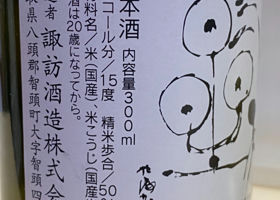 本酒 内容量300ml
コール分/15度 精米歩合/50
料名/米(国産)、米こうじ(国産
酒は20歳になってから。
者 諏訪酒造株式会
取県八頭郡智頭町大字智頭四